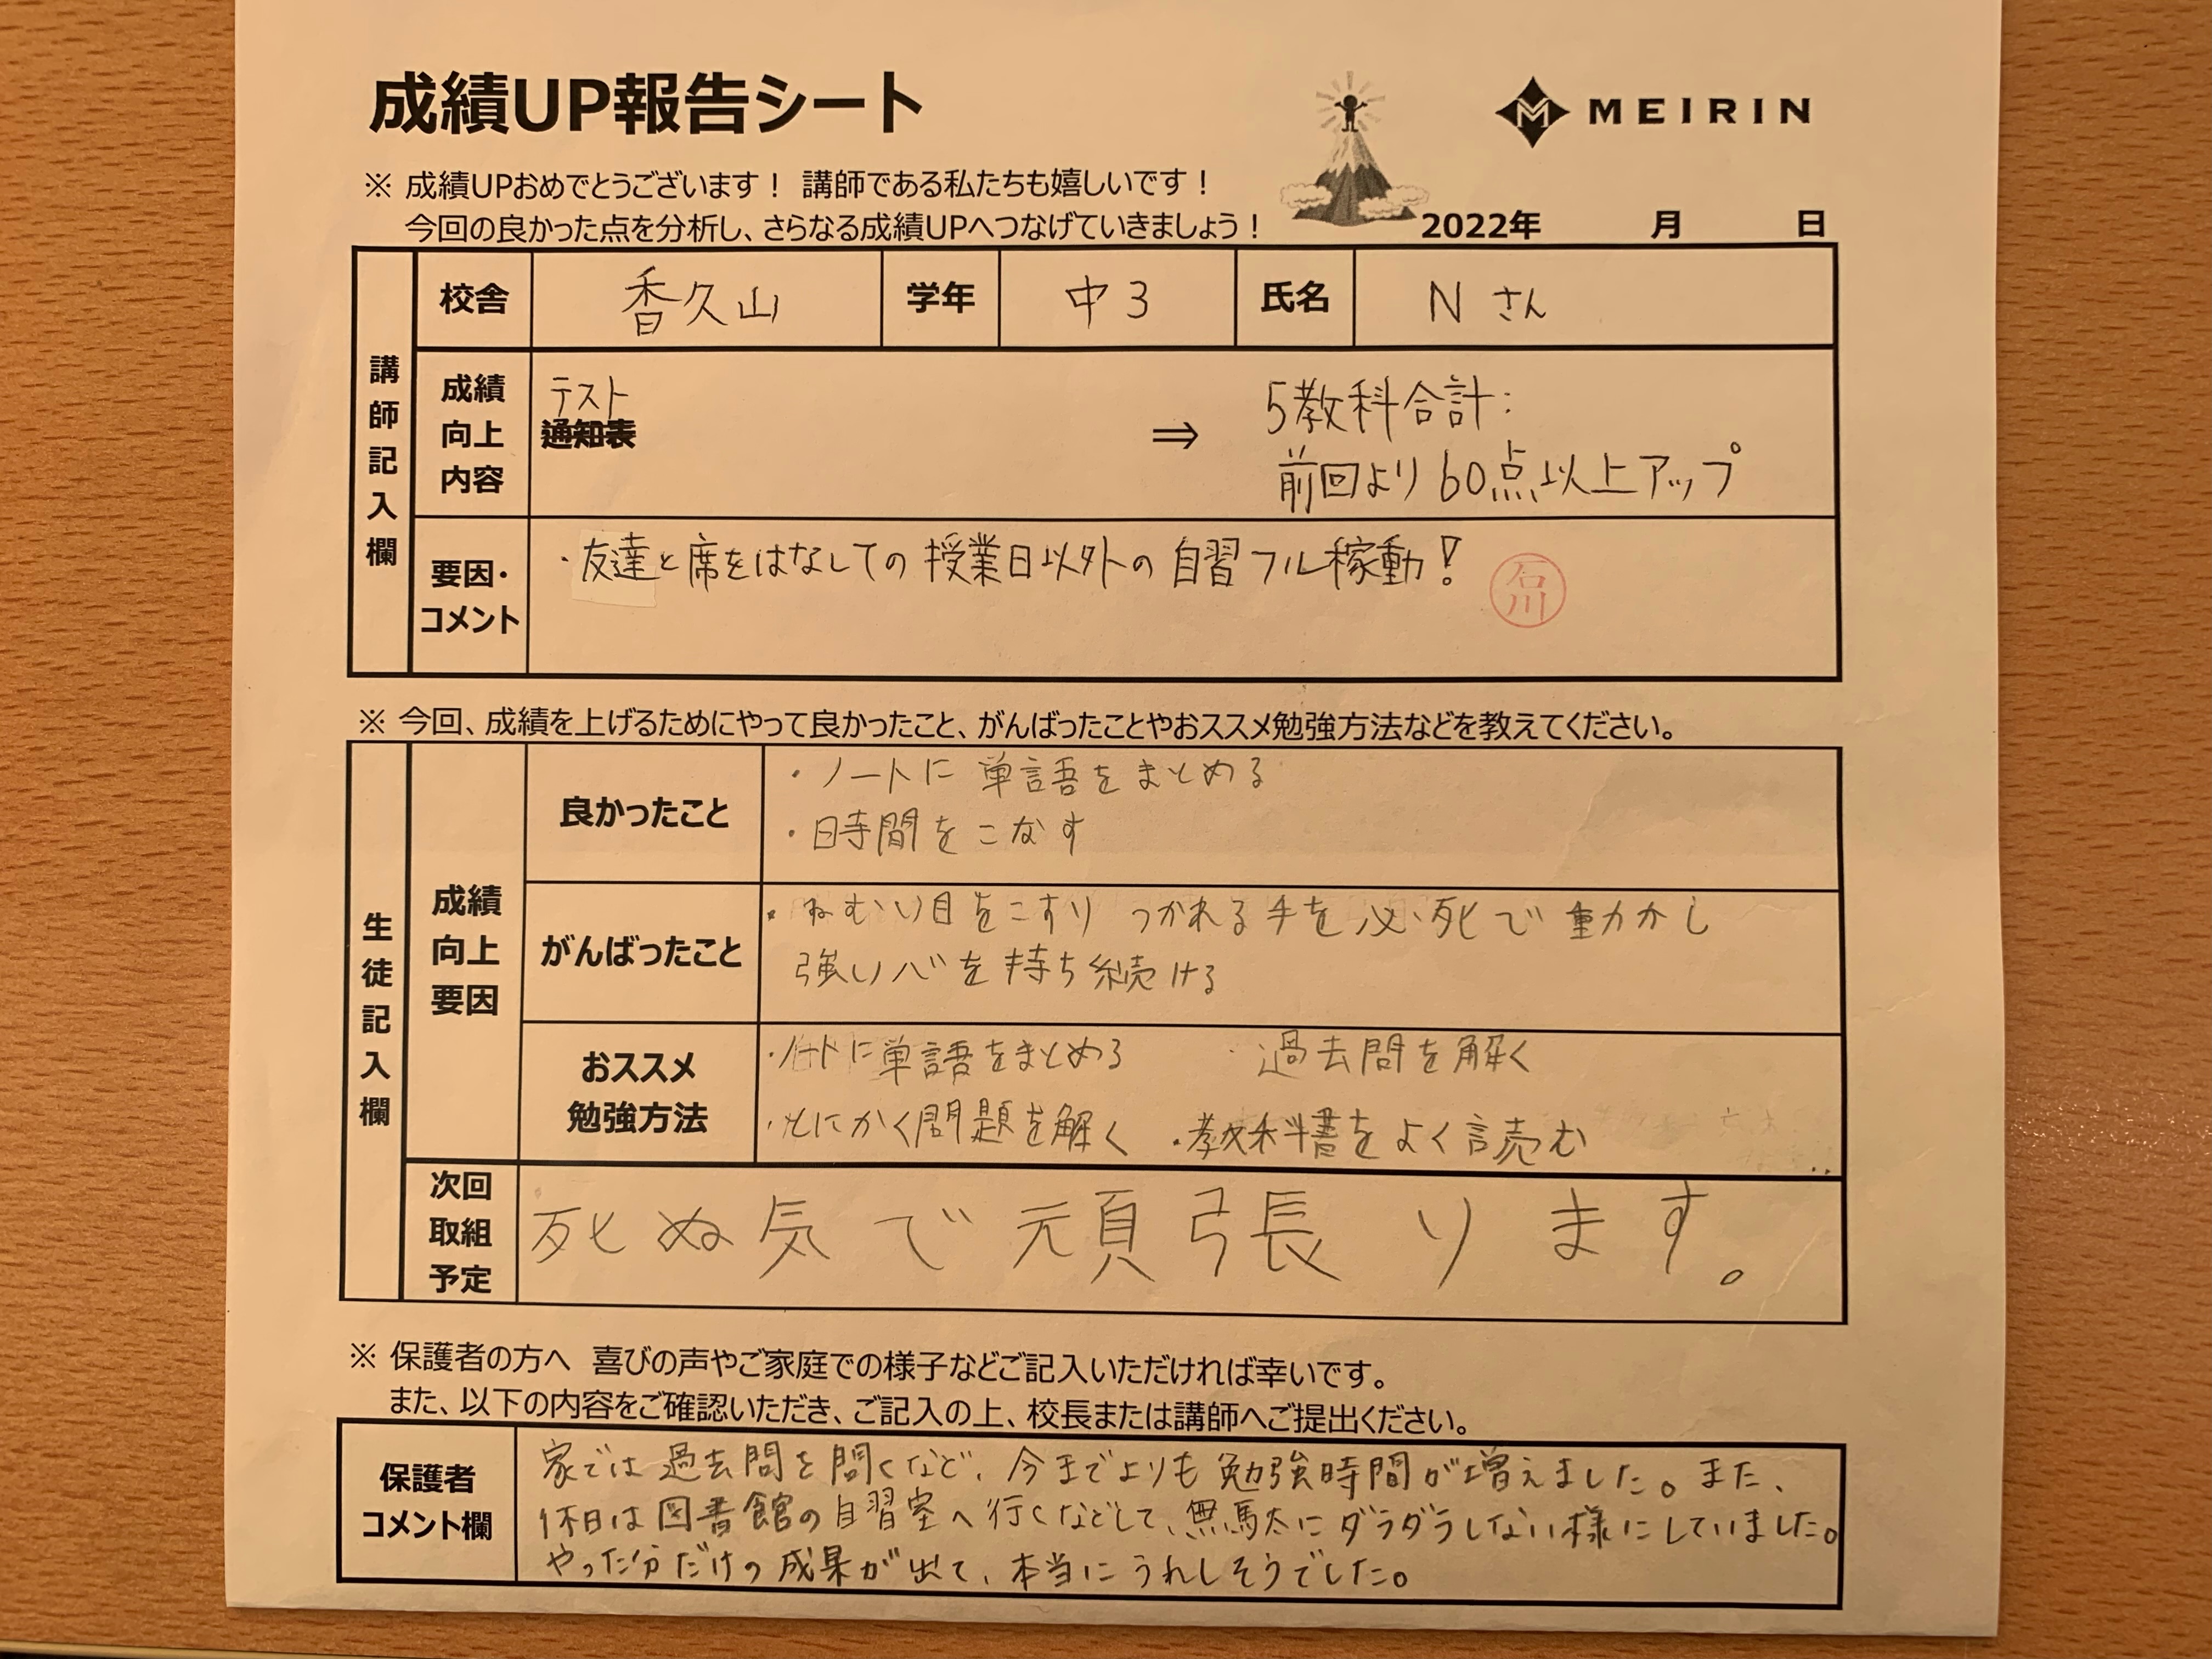 成績UP報告シート
MEIRIN
※ 成績UPおめでとうございます！ 講師である私たちも嬉しいです！
今回の良かった点を分析し、さらなる成績UPへつなげていきましょう！
2022年 月 日
講師記入欄
校舎 香久山 学年 中3 氏名 Nさん
成績向上内容
テスト
通知表
⇒
5教科合計:
前回より60点以上アップ
要因・コメント
・友達と席をはなしての授業日以外の自習フル稼動!
石川
※ 今回、成績を上げるためにやって良かったこと、がんばったことやおススメ勉強方法などを教えてください。
生徒記入欄
成績向上要因
良かったこと
・ノートに単語をまとめる
・時間をこなす
がんばったこと
・ねむい目をこすり つかれる手を必死で動かし
強い心を持ち続ける
おススメ
勉強方法
・ノートに単語をまとめる ・過去問を解く
・とにかく問題を解く ・教科書をよく読む
次回取組予定
死ぬ気で頑張ります。
※ 保護者の方へ 喜びの声やご家庭での様子などご記入いただければ幸いです。
また、以下の内容をご確認いただき、ご記入の上、校長または講師へご提出ください。
保護者
コメント欄
家では過去問を問くなど、今までよりも勉強時間が増えました。また、
休日は図書館の自習室へ行くなどして、無駄にダラダラしない様にしていました。
やった分だけの成果が出て、本当にうれしそうでした。